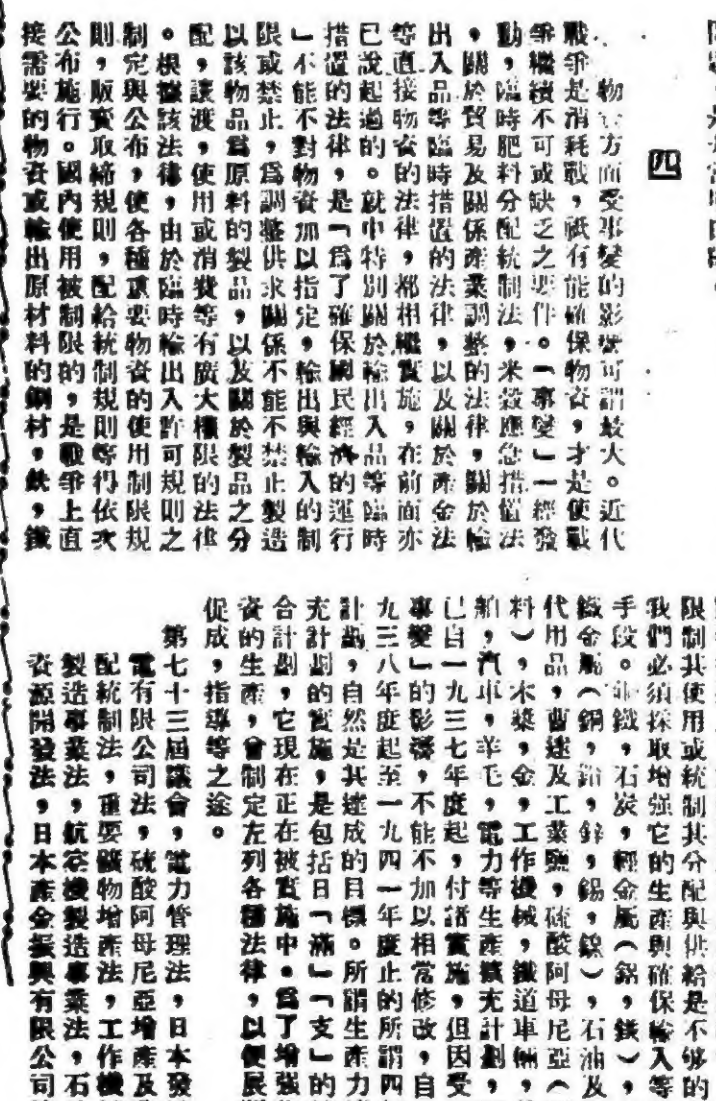 四
物資方面受事變的影響可謂最大。近代
戰爭是消耗戰，祇有能確保物資，才是使戰
爭繼續不可或缺乏之要件。「事變」一經發
動，臨時肥料分配統制法，米穀應急措置法
，關於貿易及關係產業調整的法律，關於輸
出入品等臨時措置的法律，以及關於產金法
等直接物資的法律，都相繼實施，在前面亦
已說起過的。就中特別關於輸出入品等臨時
措置的法律，是「爲了確保國民經濟的運行
」不能不對物資加以指定，輸出與輸入的制
限或禁止，爲調整供求關係不能不禁止製造
以該物品爲原料的製品，以及關於製品之分
配，讓渡，使用或消費等有廣大權限的法律
。根據該法律，由於臨時輸出入許可規則之
制定與公布，使各種重要物資的使用制限規
則，販賣取締規則，配給統制規則等得依次
公布施行。國內使用被制限的，是戰爭上直
接需要的物資或輸出原材料的鋼材，鉄，鐵
限制其使用或統制其分配與供給是不够的
我們必須採取增强它的生產與確保輸入等
手段。非鐵，石炭，輕金屬（鋁，鎂），
鐵金屬（銅，鉛，鋅，錫，鎳），石油及
代用品，曹達及工業鹽，硫酸阿母尼亞（
料），木槳，金，工作機械，鐵道車輛，
舶，汽車，羊毛，電力等生產擴充計劃，
已自一九三七年度起，付諸實施，但因受
事變」的影響，不能不加以相當修改，自
九三八年度起至一九四一年度止的所謂四
計劃，自然是其達成的目標。所謂生產力
充計劃的實施，是包括日「滿」「支」的
合計劃，它現在正在被實施中。爲了增强
資的生產，會制定左列各種法律，以便展
促成，指導等之途。
第七十三屆議會，電力管理法，日本發
電有限公司法，硫酸阿母尼亞增產及
配統制法，重要鑛物增產法，工作機
製造事業法，航空機製造事業法，石
資源開發法，日本產金振興有限公司